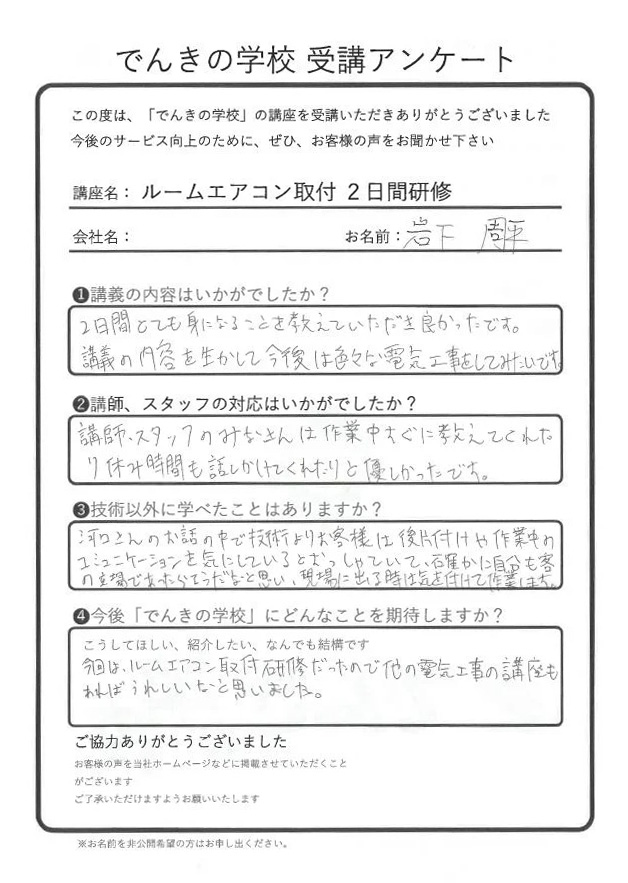 でんきの学校 受講アンケート
この度は、「でんきの学校」の講座を受講いただきありがとうございました
今後のサービス向上のために、ぜひ、お客様の声をお聞かせ下さい
講座名： ルームエアコン取付 ２日間研修
会社名： お名前：岩下 周平
❶講義の内容はいかがでしたか？
2日間とても身になることを教えていただき良かったです。
講義の内容を生かして今後は色々な電気工事をしてみたいです
❷講師、スタッフの対応はいかがでしたか？
講師、スタッフのみなさんは作業中すぐに教えてくれた
り休み時間も話しかけてくれたりと優しかったです。
❸技術以外に学べたことはありますか？
河口さんのお話の中で技術よりお客様は後片付けや作業中の
コミュニケーションを気にしているとおっしゃていて、確かに自分も客
の立場であったらそうだなと思い、現場に出る時は気を付けて作業します。
❹今後「でんきの学校」にどんなことを期待しますか？
こうしてほしい、紹介したい、なんでも結構です
今回は、ルームエアコン取付研修だったので他の電気工事の講座も
あればうれしいなと思いました。
ご協力ありがとうございました
お客様の声を当社ホームページなどに掲載させていただくこと
がございます
ご了承いただけますようお願いいたします
※お名前を非公開希望の方はお申し出ください。